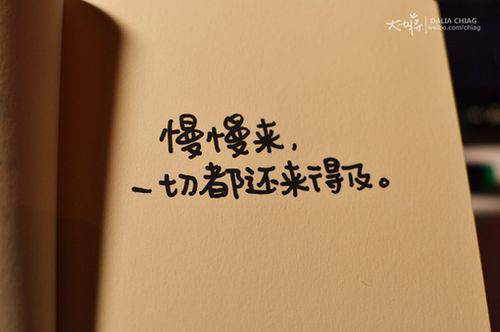 DALIA CHIAG
weibo.com/chiag
慢慢来，
一切都还来得及。